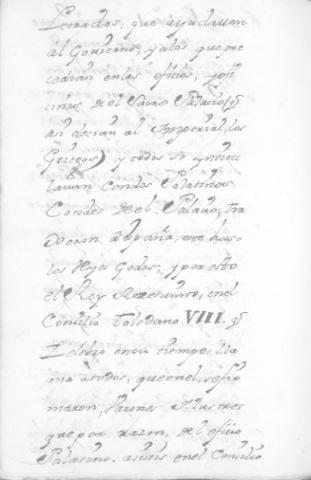 Letrados, que ayudavan
al Governo, y a los que pre
sidian en los ofiios, y ofi
cinas del Sacro Palacio (
asi decian al Ymperial, los
Griegos) y todos se yntitu
lavan Condes Palatinos
Condes del Palacio, tra
Dxeron a España, este huso
los Reyes Godos; y por esto
el Rey Rezesuinto, en el
Concilio Toledano VIII.
Zelebro en su tiempo, lla
ma a todos, que en el, se fir
maron, Varones Illustres
que por razon, del ofiio
Palatino. asistis en el Concilio